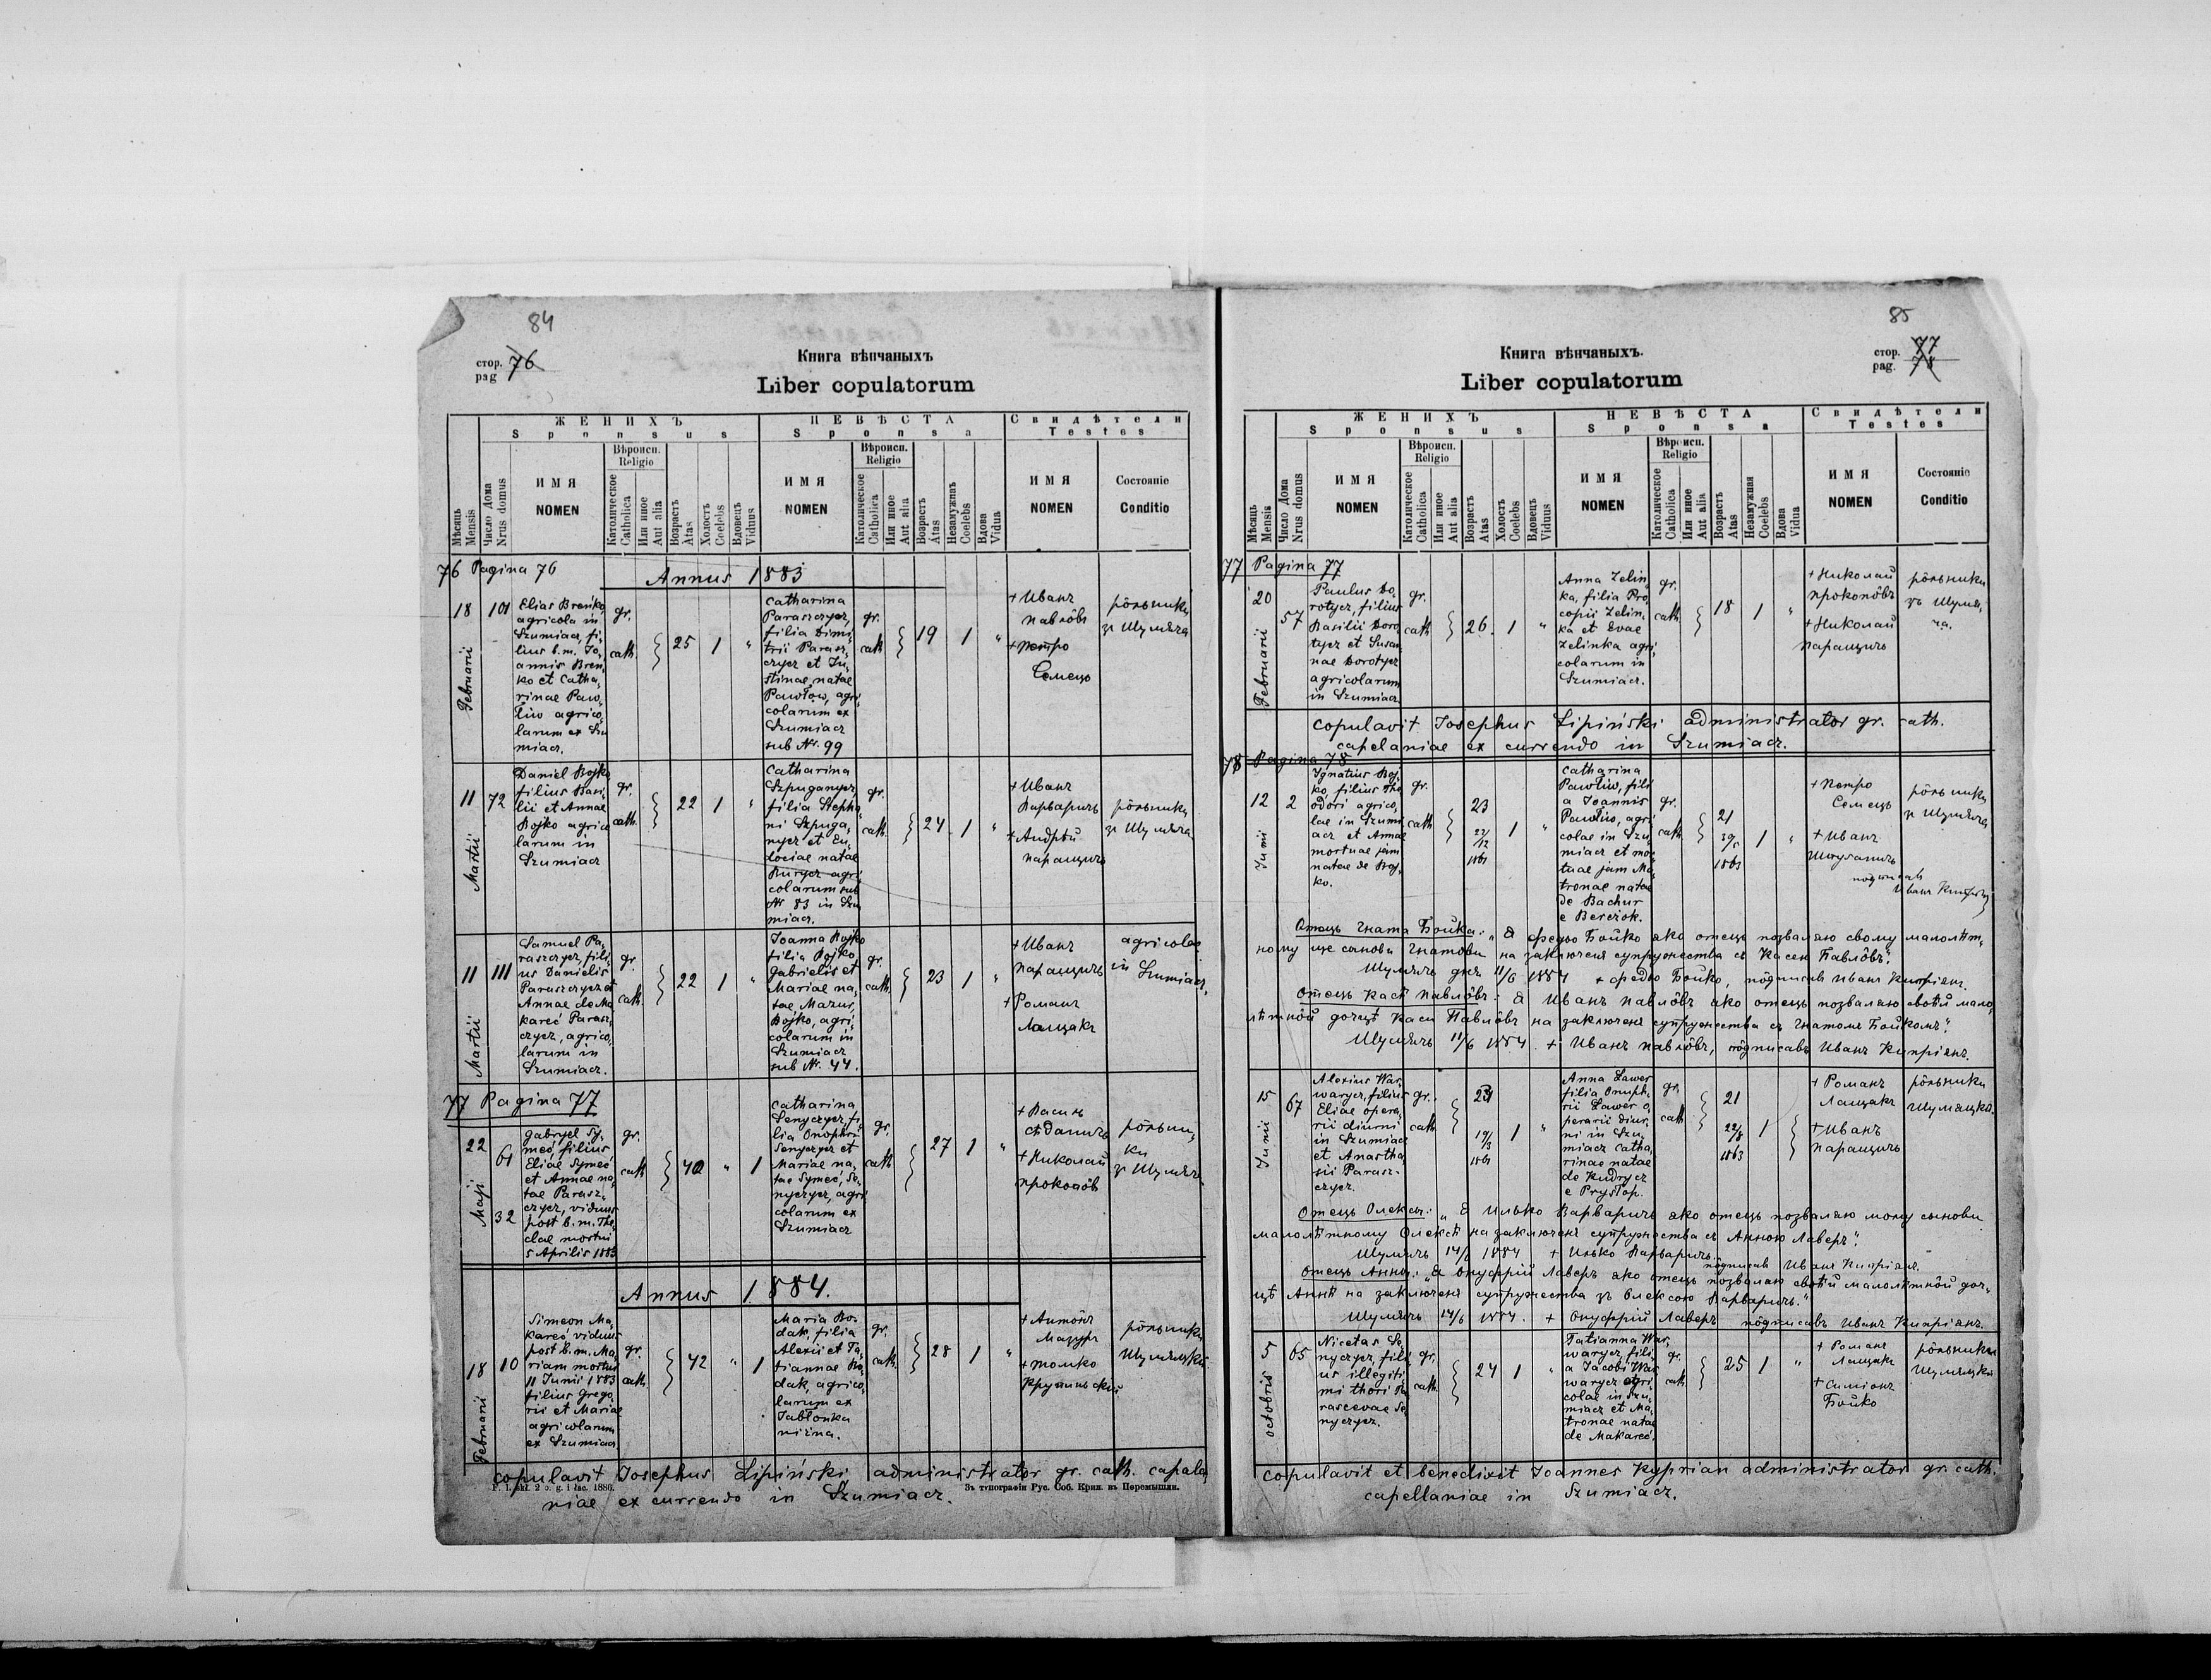 84
стор. 76
pag
Книга вѣнчаныхъ
Liber copulatorum
ЖЕНИХЪ
Sponsus
НЕВѢСТА
Sponsa
Свидѣтели
Testes
Мѣсяць Mensis
Число Дома Nrus domus
ИМЯ
NOMEN
Вѣроисп.
Religio
Католическое Catholica
Или иное Aut alia
Возрастъ Atas
Холостъ Coelebs
Вдовець Viduus
ИМЯ
NOMEN
Вѣроисп.
Religio
Католическое Catholica
Или иное Aut alia
Возрастъ Atas
Незамужняя Coelebs
Вдова Vidua
ИМЯ
NOMEN
Состояніе
Conditio
76 Pagina 76
Annus 1883
18 Februarii
101
Elias Breńko
agricola in
Szumiacz, fi-
lius b.m. Jo-
annis Breń-
ko et Catha-
rinae Paw-
lúw agrico-
larum ex Szu
miacz.
gr. cath.
25 1 "
Catharina
Paraszczycz,
filia Dimi-
trii Parasz-
czycz et Ju-
stinae, natae
Pawłow, agri
colarum ex
Szumiacz
sub Nr. 99
gr. cath.
19 1 "
+ Иванъ
Павлôвъ
+ Петро
Семець
рôльники
зъ Шумяча
11 Martii
72
Daniel Bojko
filius Basi-
lii et Annae
Bojko agrico
larum in
Szumiacz
gr. cath.
22 1 "
Catharina
Szpuganycz,
filia Stepha
ni Szpuga-
nycz et Eu-
dociae natae
Burycz agri
colarum sub
Nr 83 in Szu
miacz.
gr. cath.
24 1 "
+ Иванъ
Варваричъ
+ Андрѣй
Паращичъ
рôльники
зъ Шумяча
11 Martii
111
Samuel Pa-
raszczycz, fili-
us Danielis
Paraszczycz et
Annae de Ma
kareć Parasz-
czycz, agrico-
larum in
Szumiacz.
gr. cath.
22 1 "
Joanna Bojko
filia Bojko
Gabrielis et
Mariae na-
tae Mazur,
Bojko, agri-
colarum in
Szumiacz
sub Nr. 44.
gr. cath.
23 1 "
+ Иванъ
Паращичъ
+ Романъ
Лащакъ
agricolae
in Szumiacz,
77 Pagina 77
22 Maji
61
32
Gabryel Sy-
meć, filius
Eliae Symeć
et Annae na
tae Parasz-
czycz, viduus
post b.m. The
clae mortui
5 Aprilis 1883
gr. cath
40 " 1
Catharina
Senyczycz, fi-
lia Onophri
Senyczycz et
Mariae na-
tae Symeć, Se-
nyczycz, agri
colarum ex
Szumiacz
gr. cath
27 1 "
+ Василь
+ Николай
Прокопôвъ
рôльни-
ки
зъ Шумяча
Annus 1884.
18 Februarii
10
Simeon Ma-
kareć viduus
post b.m. Ma
riam mortui
11 Junii 1883
filius Grego-
rii et Mariae
agricolarum
ex Szumiacz
gr. cath.
42 " 1
Maria Bo-
dak, filia
Alexii et Ta-
tiannae Bo-
dak, agrico-
larum ex
Jabłonka
niżna.
gr. cath.
28 1 "
+ Антônъ
Мазуръ
+ Томко
рôльники
Шумяцкі
copulavit Josephus Lipiński administrator gr. cath. capela
niae ex currendo in Szumiacz.
Зъ типографіи Рус. Соб. Крил. въ Перемышли.
85
стор. 77
pag. 78
Книга вѣнчаныхъ.
Liber copulatorum
ЖЕНИХЪ
Sponsus
НЕВѢСТА
Sponsa
Свидѣтели
Testes
Мѣсяць Mensis
Число Дома Nrus domus
ИМЯ
NOMEN
Вѣроисп.
Religio
Католическое Catholica
Или иное Aut alia
Возрастъ Atas
Холостъ Coelebs
Вдовець Viduus
ИМЯ
NOMEN
Вѣроисп.
Religio
Католическое Catholica
Или иное Aut alia
Возрастъ Atas
Незамужная Coelebs
Вдова Vidua
ИМЯ
NOMEN
Состояніе
Conditio
77 Pagina 77
20 Februarii
57
Paulus Do-
rotycz, filius
Basilii Doro
tycz et Susan
nae Dorotycz
agricolarum
in Szumiacz
gr. cath
26. 1 "
Anna Zelin-
ka, filia Pro
copii Zelin-
ka et Evae
Zelinka agri-
colarum in
Szumiacz.
gr. cath
18 1 "
+ Николай
Прокопôвъ
+ Николай
Паращичъ
рôльники
зъ Шумя-
ча.
copulavit Josephus Lipiński administrator gr. cath.
capelaniae ex currendo in Szumiacz.
78 Pagina 78
12 Junii
2
Ignatius Boj-
ko, filius The
odori agrico-
lae in Szumi
acz et Annae
mortuae jam
natae de Boj-
ko.
gr. cath
23
22/12
1861
1 "
Catharina
Pawlúw, fili
a Joannis
Pawlúw, agri
colae in Szu
miacz et mor
tuae jam Ma
tronae natae
de Bachur
e Bereżok.
gr. cath
21
1863
1 "
+ Петро
Семець
+ Иванъ
Шпуганичъ
подписавъ
Иванъ Кипріянъ
рôльники
зъ Шумяча
Отець Игната Бойка: „Я Федьо Бойко яко отець позваляю свому малолѣт-
ному ще сынови Игнатови на заключеня супружества съ Касею Павлôвъ".
Шумячъ дня 11/6 1884 + Федьо Бойко, пôдписавъ Иванъ Кипріянъ.
Отець Касѣ Павлôвъ: Я Иванъ Павлôвъ яко отець позваляю своѣй мало-
лѣтнôй дочцѣ Каси Павлôвъ на заключеня супружества съ Игнатомъ Бойкомъ".
Шумячъ 11/6 1884. + Иванъ Павлôвъ, пôдписавъ Иванъ Кипріянъ.
15 Junii
67
Alexius War-
warycz, filius
Eliae opera-
rii diurni
in Szumiacz
et Anastha
sii Parasz-
czycz.
gr. cath
19/3
1861
1 "
Anna Lawer
filia Onuph-
rii Lawer o-
perarii diur-
ni in Szu-
miacz Catha-
rinae natae
de Kudrycz
e Prysłop.
gr. cath
21
22/8
1863
1
+ Романъ
Лащакъ
+ Иванъ
Паращичъ
рôльники
Шумяцкі.
Отець Олексы: „Я Илько Варваричъ яко отець позваляю мому сынови
малолѣтному Олексѣ на заключеня супружества съ Анною Лаверъ".
Шумячъ 14/6 1884 + Илько Варваричъ.
пôдписавъ Иванъ Кипріянъ.
Отець Анны: „Я Онуфрій Лаверъ яко отець позваляю своѣй малолѣтнôй доч-
цѣ Аннѣ на заключеня супружества зъ Олексою Варваричъ."
Шумячъ 14/6 1884. + Онуфрій Лаверъ пôдписавъ Иванъ Кипріянъ.
5 octobris
65
Nicetas Se-
nyczycz, fili
us illegiti-
mi thori Pa
rascevae Se-
nyczycz.
gr. cath.
24 1 "
Tatianna War-
warycz, fili
a Jacobi War
warycz agri-
colae in Szu-
miacz et Ma-
tronae natae
de Makareć.
gr. cath.
25 1 "
+ Романъ
Лащакъ
+ Симіонъ
Бойко
рôльники
Шумяцкі
copulavit et benedixit Joannes Kyprian administrator gr. cath.
capellaniae in Szumiacz.